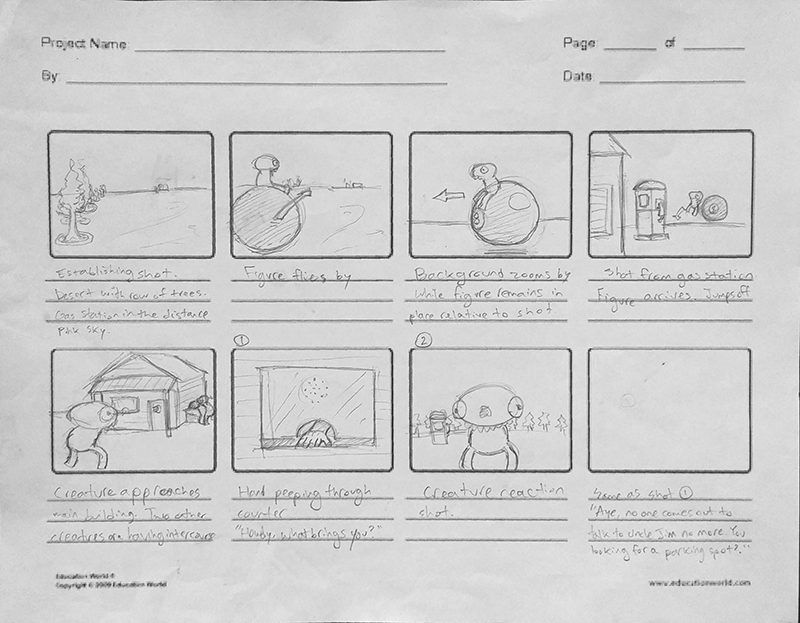 Project Name:
Page of
By
Date
Establishing shot.
Desert with row of trees.
Gas Station in the distance
Pink Sky.
Figure flies by
Background zooms by
while figure remains in
place relative to shot
Shot from gas station
Figure arrives. Jumps off
Creature approaches
main building. Two other
creatures are having intercourse
①
Hand peeping through
counter
"Howdy, what brings you?"
②
Creature reaction
shot.
Same as shot ①
"Aye, no one comes out to
talk to Uncle Jim no more. You
looking for a parking spot?."
Education World ®
Copyright © 2009 Education World
www.educationworld.com